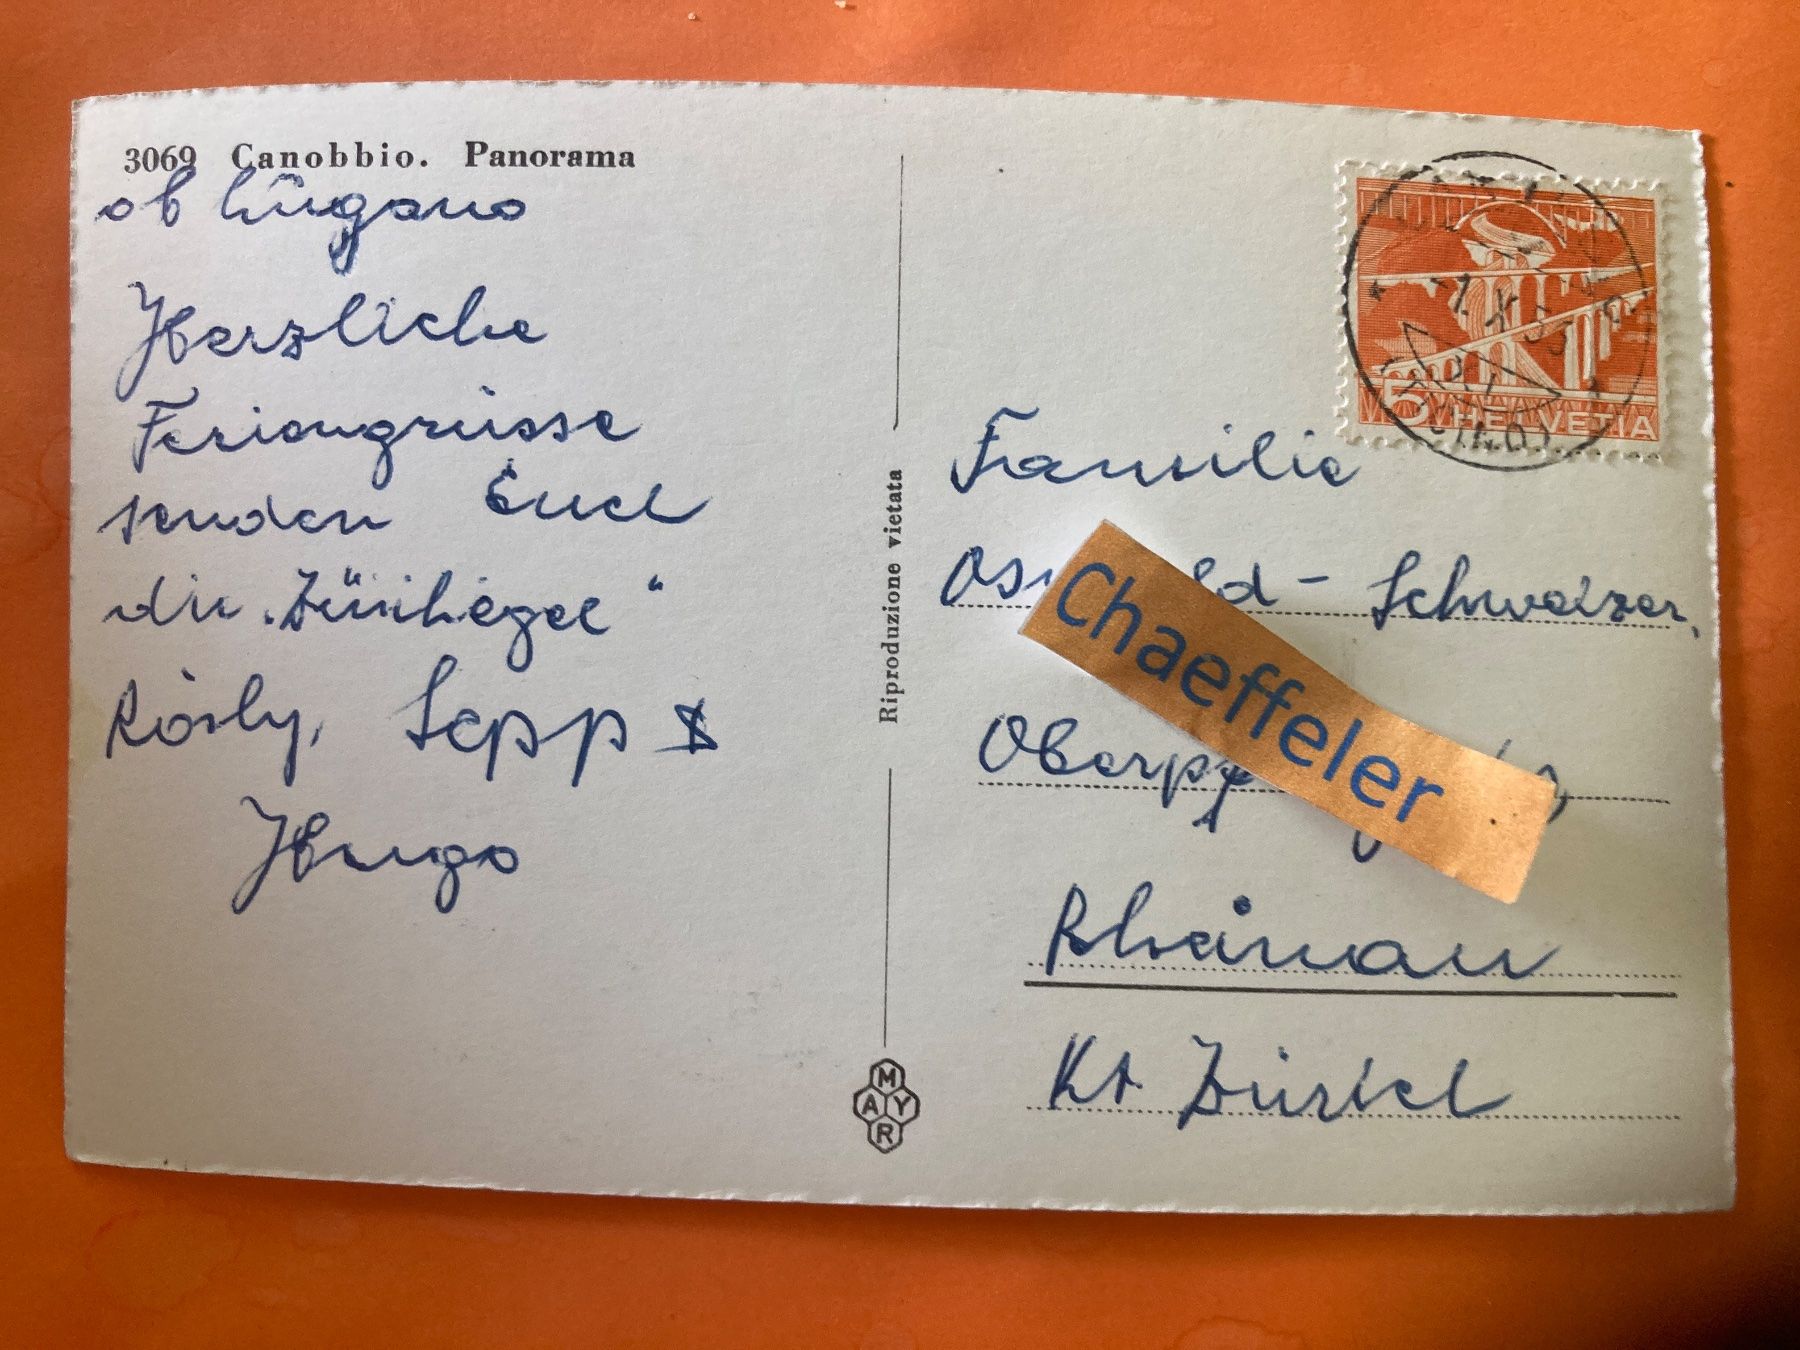 3069 Canobbio. Panorama
ob Lugano
Herzliche
Feriengrüsse
senden Euch
die „Zürihegel“
Rösly, Sepp &
Hugo
Riproduzione vietata
MAYR
-1.X.53
5 HELVETIA
Familie
Schweizer,
Chaeffeler
Rheinau
Kt. Zürich